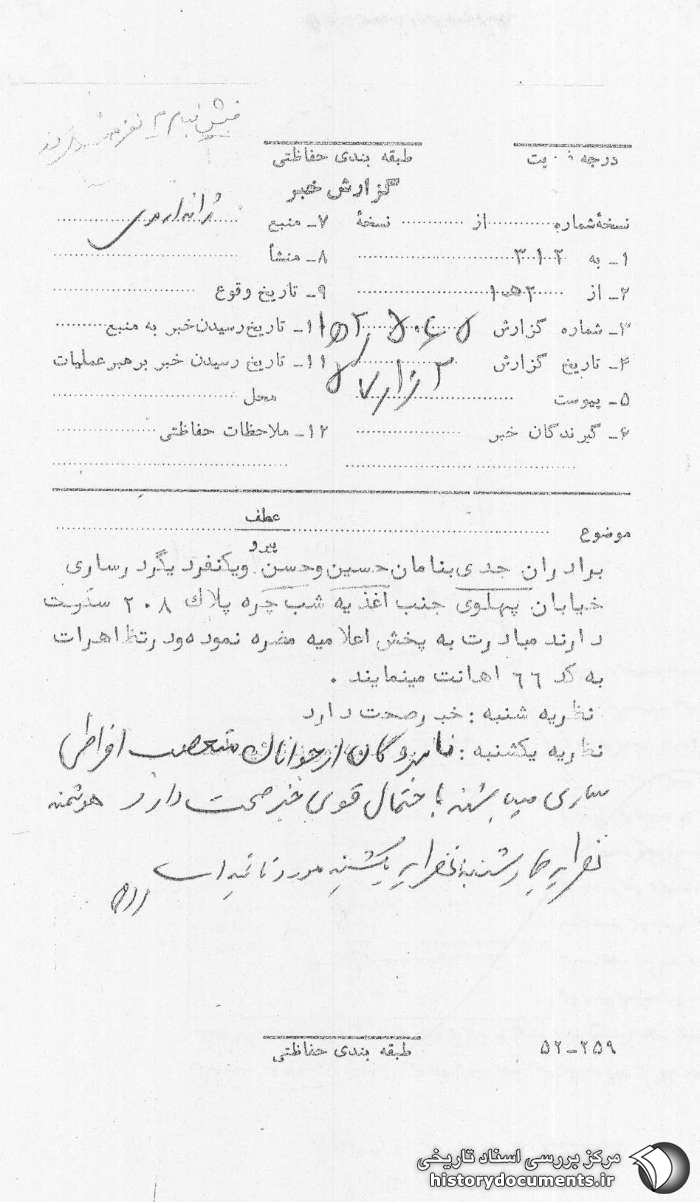 طبقه بندی حفاظتی
درجه فوریت
گزارش خبر
نسخهٔ شماره از نسخهٔ
۷ـ منبع
۱ـ به ۳۱۲
۸ـ منشأ
۲ـ از ۱۰ه۲
۹ـ تاریخ وقوع
۳ـ شماره گزارش
۱۰ـ تاریخ رسیدن خبر به منبع
۴ـ تاریخ گزارش
۱۱ـ تاریخ رسیدن خبر برهبر عملیات
۵ـ پیوست
محل
۶ـ گیرندگان خبر
۱۲ـ ملاحظات حفاظتی
موضوع
عطف
پیرو
برادران جدی بنامان حسین وحسن ویکنفر دیگر درساری
خیابان پهلوی جنب اغذیه شب چره پلاک ۲۰۸ سکونت
دارند مبادرت به پخش اعلامیه مضره نموده ودرتظاهرات
به کد ۶۶ اهانت مینمایند .
نظریه شنبه : خبرصحت دارد
نظریه یکشنبه : نامبردگان ازجوانان متعصب افراطی
ساری میباشند باحتمال قوی خبر صحت دارد هوشمند
نظریه چهارشنبه نظریه یکشنبه مورد تائید است
۵۲ـ۲۵۹
طبقه بندی حفاظتی
مرکز بررسی اسناد تاریخی
historydocuments.ir